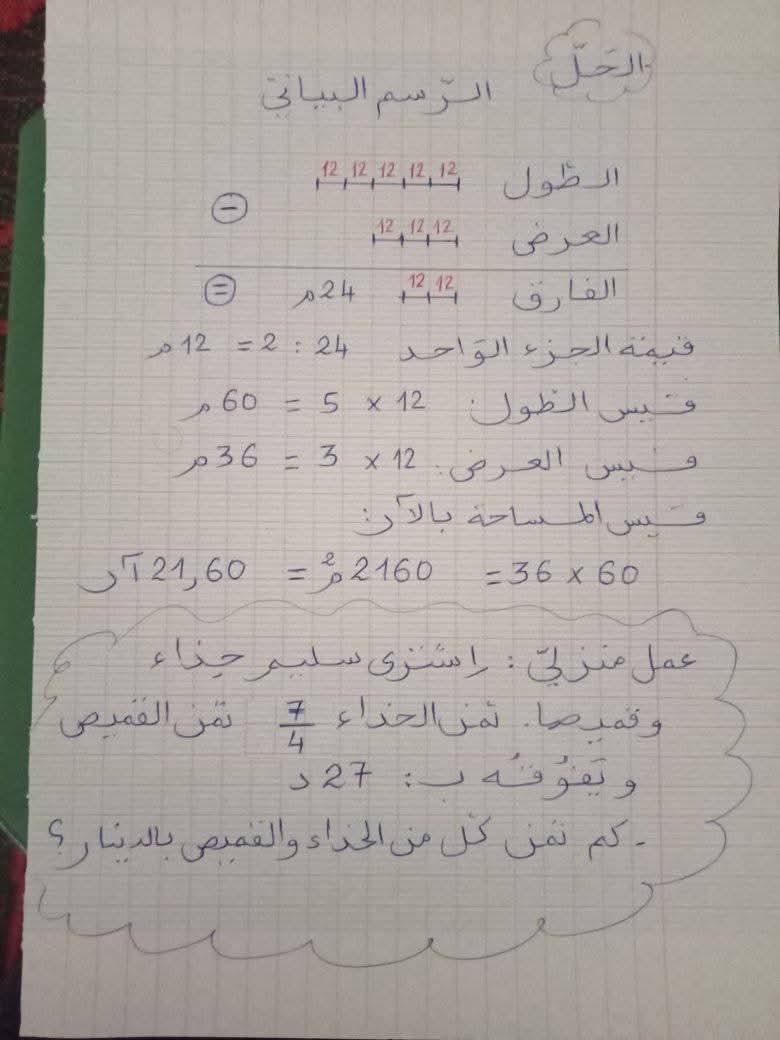 الحَلّ
الرّسم البياني
الطّول 12 12 12 12 12
العرض 12 12 12
−
الفارق 12 12 24م =
قيمة الجزء الوَاحد 24 : 2 = 12م
قَيس الطّول: 12 × 5 = 60م
قَيس العرض: 12 × 3 = 36م
قَيس المساحة بالآر:
60 × 36 = 2160م² = 21,60آر
عمل منزليّ: اشترى سليم حذاء
وقميصا. ثمن الحذاء 7/4 ثمن القميص
ويَفُوقُه بـ: 27د
- كم ثمن كلّ من الحذاء والقميص بالدينار؟